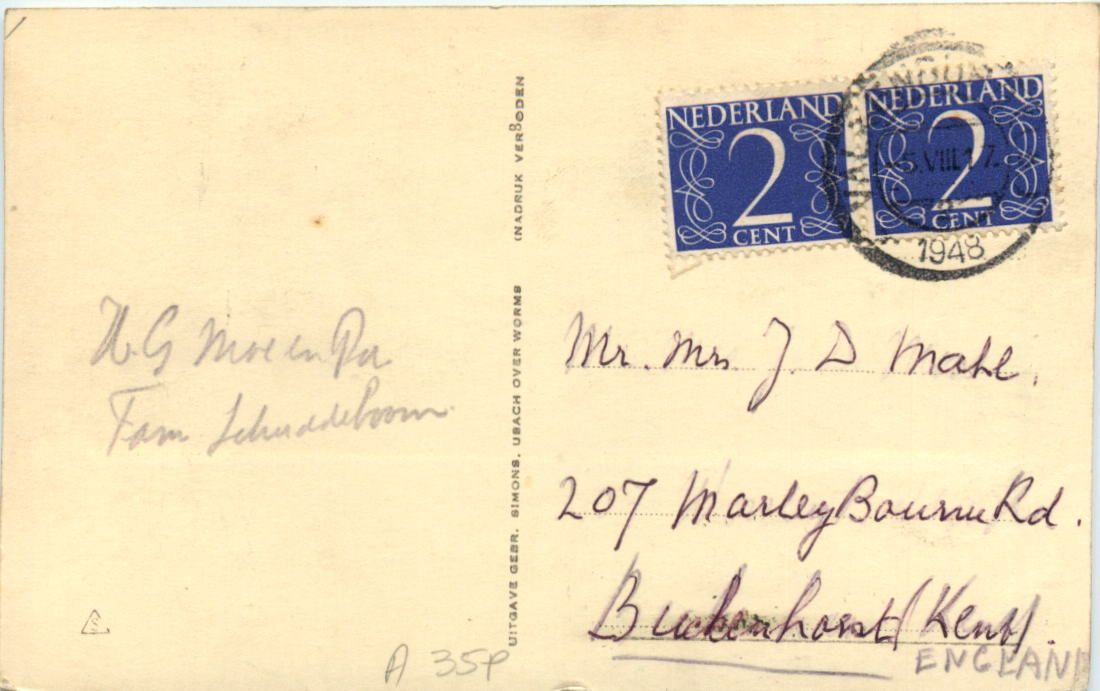 NEDERLAND
2
CENT
NEDERLAND
2
CENT
1948
UITGAVE GEBR. SIMONS, UBACH OVER WORMS (NADRUK VERBODEN
H. G Moe en Pa
Fam Schuddeboom.
Mr. Mrs J. D Mahl.
207 Marley Bourne Rd.
Buckenhorst (Kent).
ENGLAND
A 35p